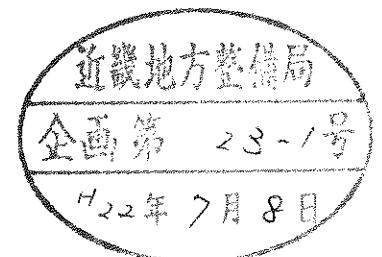 近畿地方整備局
企画第 23-1号
H22年 7月 8日